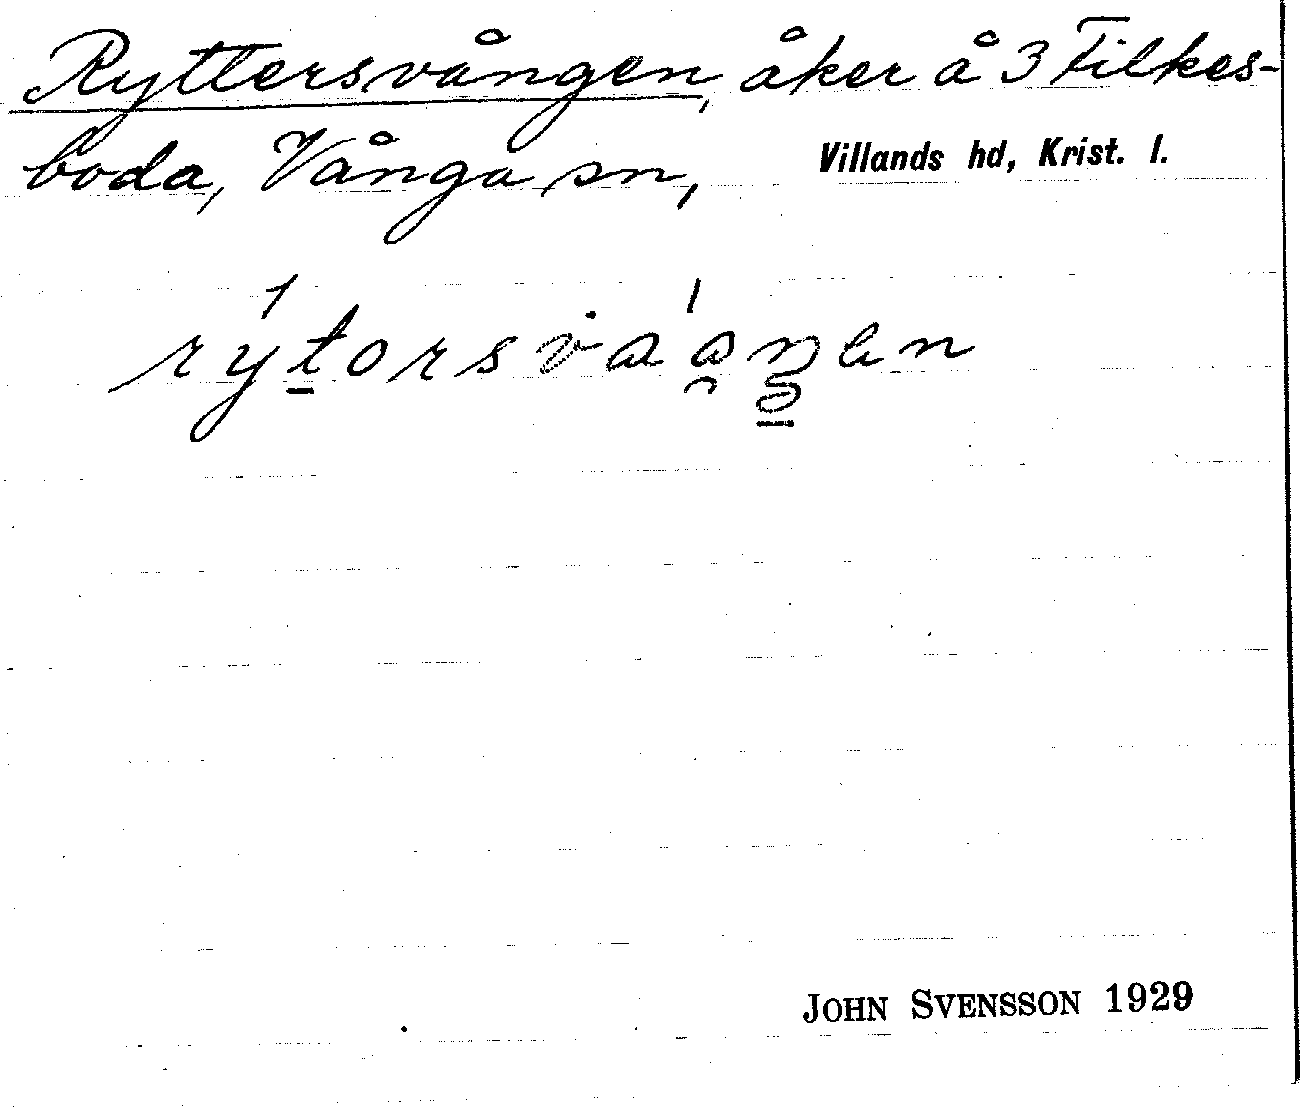 Ryttersvången, åker å 3 Filkes-
boda, Vånga sn, Villands hd, Krist. l.
rýtorsvaáŋen
JOHN SVENSSON 1929